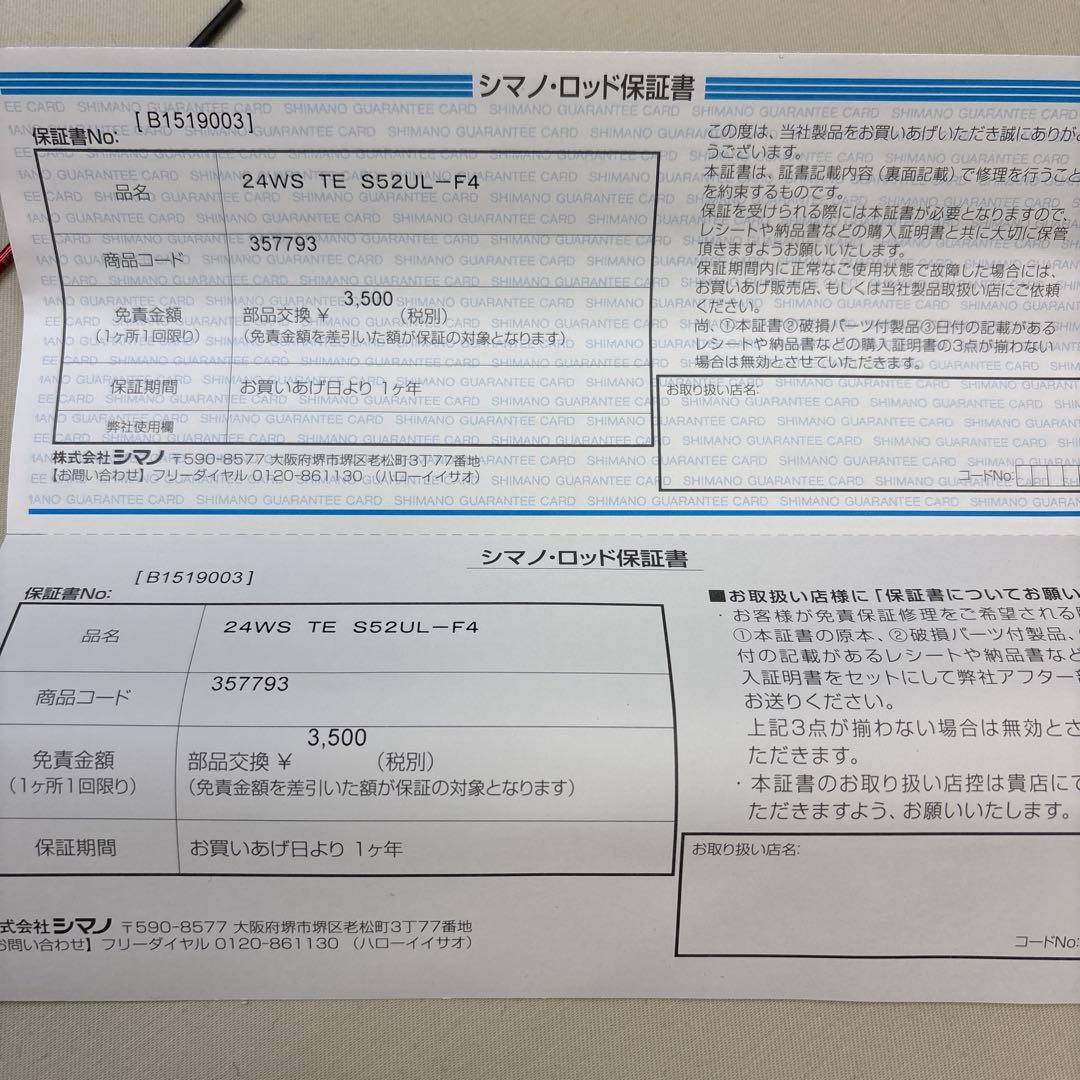 シマノ・ロッド保証書
保証書No:
[B1519003]
品名
24WS TE S52UL-F4
商品コード
357793
免責金額
(1ヶ所1回限り)
3,500
部品交換 ¥ (税別)
(免責金額を差引いた額が保証の対象となります)
保証期間
お買いあげ日より 1ヶ年
弊社使用欄
株式会社シマノ 〒590-8577 大阪府堺市堺区老松町3丁77番地
【お問い合わせ】フリーダイヤル 0120-861130 (ハローイイサオ)
この度は、当社製品をお買いあげいただき誠にありがと
うございます。
本証書は、証書記載内容(裏面記載)で修理を行うこと
を約束するものです。
保証を受けられる際には本証書が必要となりますので、
レシートや納品書などの購入証明書と共に大切に保管
頂きますようお願いいたします。
保証期間内に正常なご使用状態で故障した場合には、
お買いあげ販売店、もしくは当社製品取扱い店にご依頼
ください。
尚、①本証書②破損パーツ付製品③日付の記載がある
レシートや納品書などの購入証明書の3点が揃わない
場合は無効とさせていただきます。
お取り扱い店名:
コードNo:
SHIMANO GUARANTEE CARD
シマノ・ロッド保証書
[B1519003]
保証書No:
品名
24WS TE S52UL-F4
商品コード
357793
免責金額
(1ヶ所1回限り)
3,500
部品交換 ¥ (税別)
(免責金額を差引いた額が保証の対象となります)
保証期間
お買いあげ日より 1ヶ年
式会社シマノ 〒590-8577 大阪府堺市堺区老松町3丁77番地
お問い合わせ】フリーダイヤル 0120-861130 (ハローイイサオ)
■お取扱い店様に「保証書についてお願い
・お客様が免責保証修理をご希望される
①本証書の原本、②破損パーツ付製品、
付の記載があるレシートや納品書など
入証明書をセットにして弊社アフター
お送りください。
上記3点が揃わない場合は無効とさ
ただきます。
・本証書のお取り扱い店控は貴店にて
ただきますよう、お願いいたします。
お取り扱い店名:
コードNo: